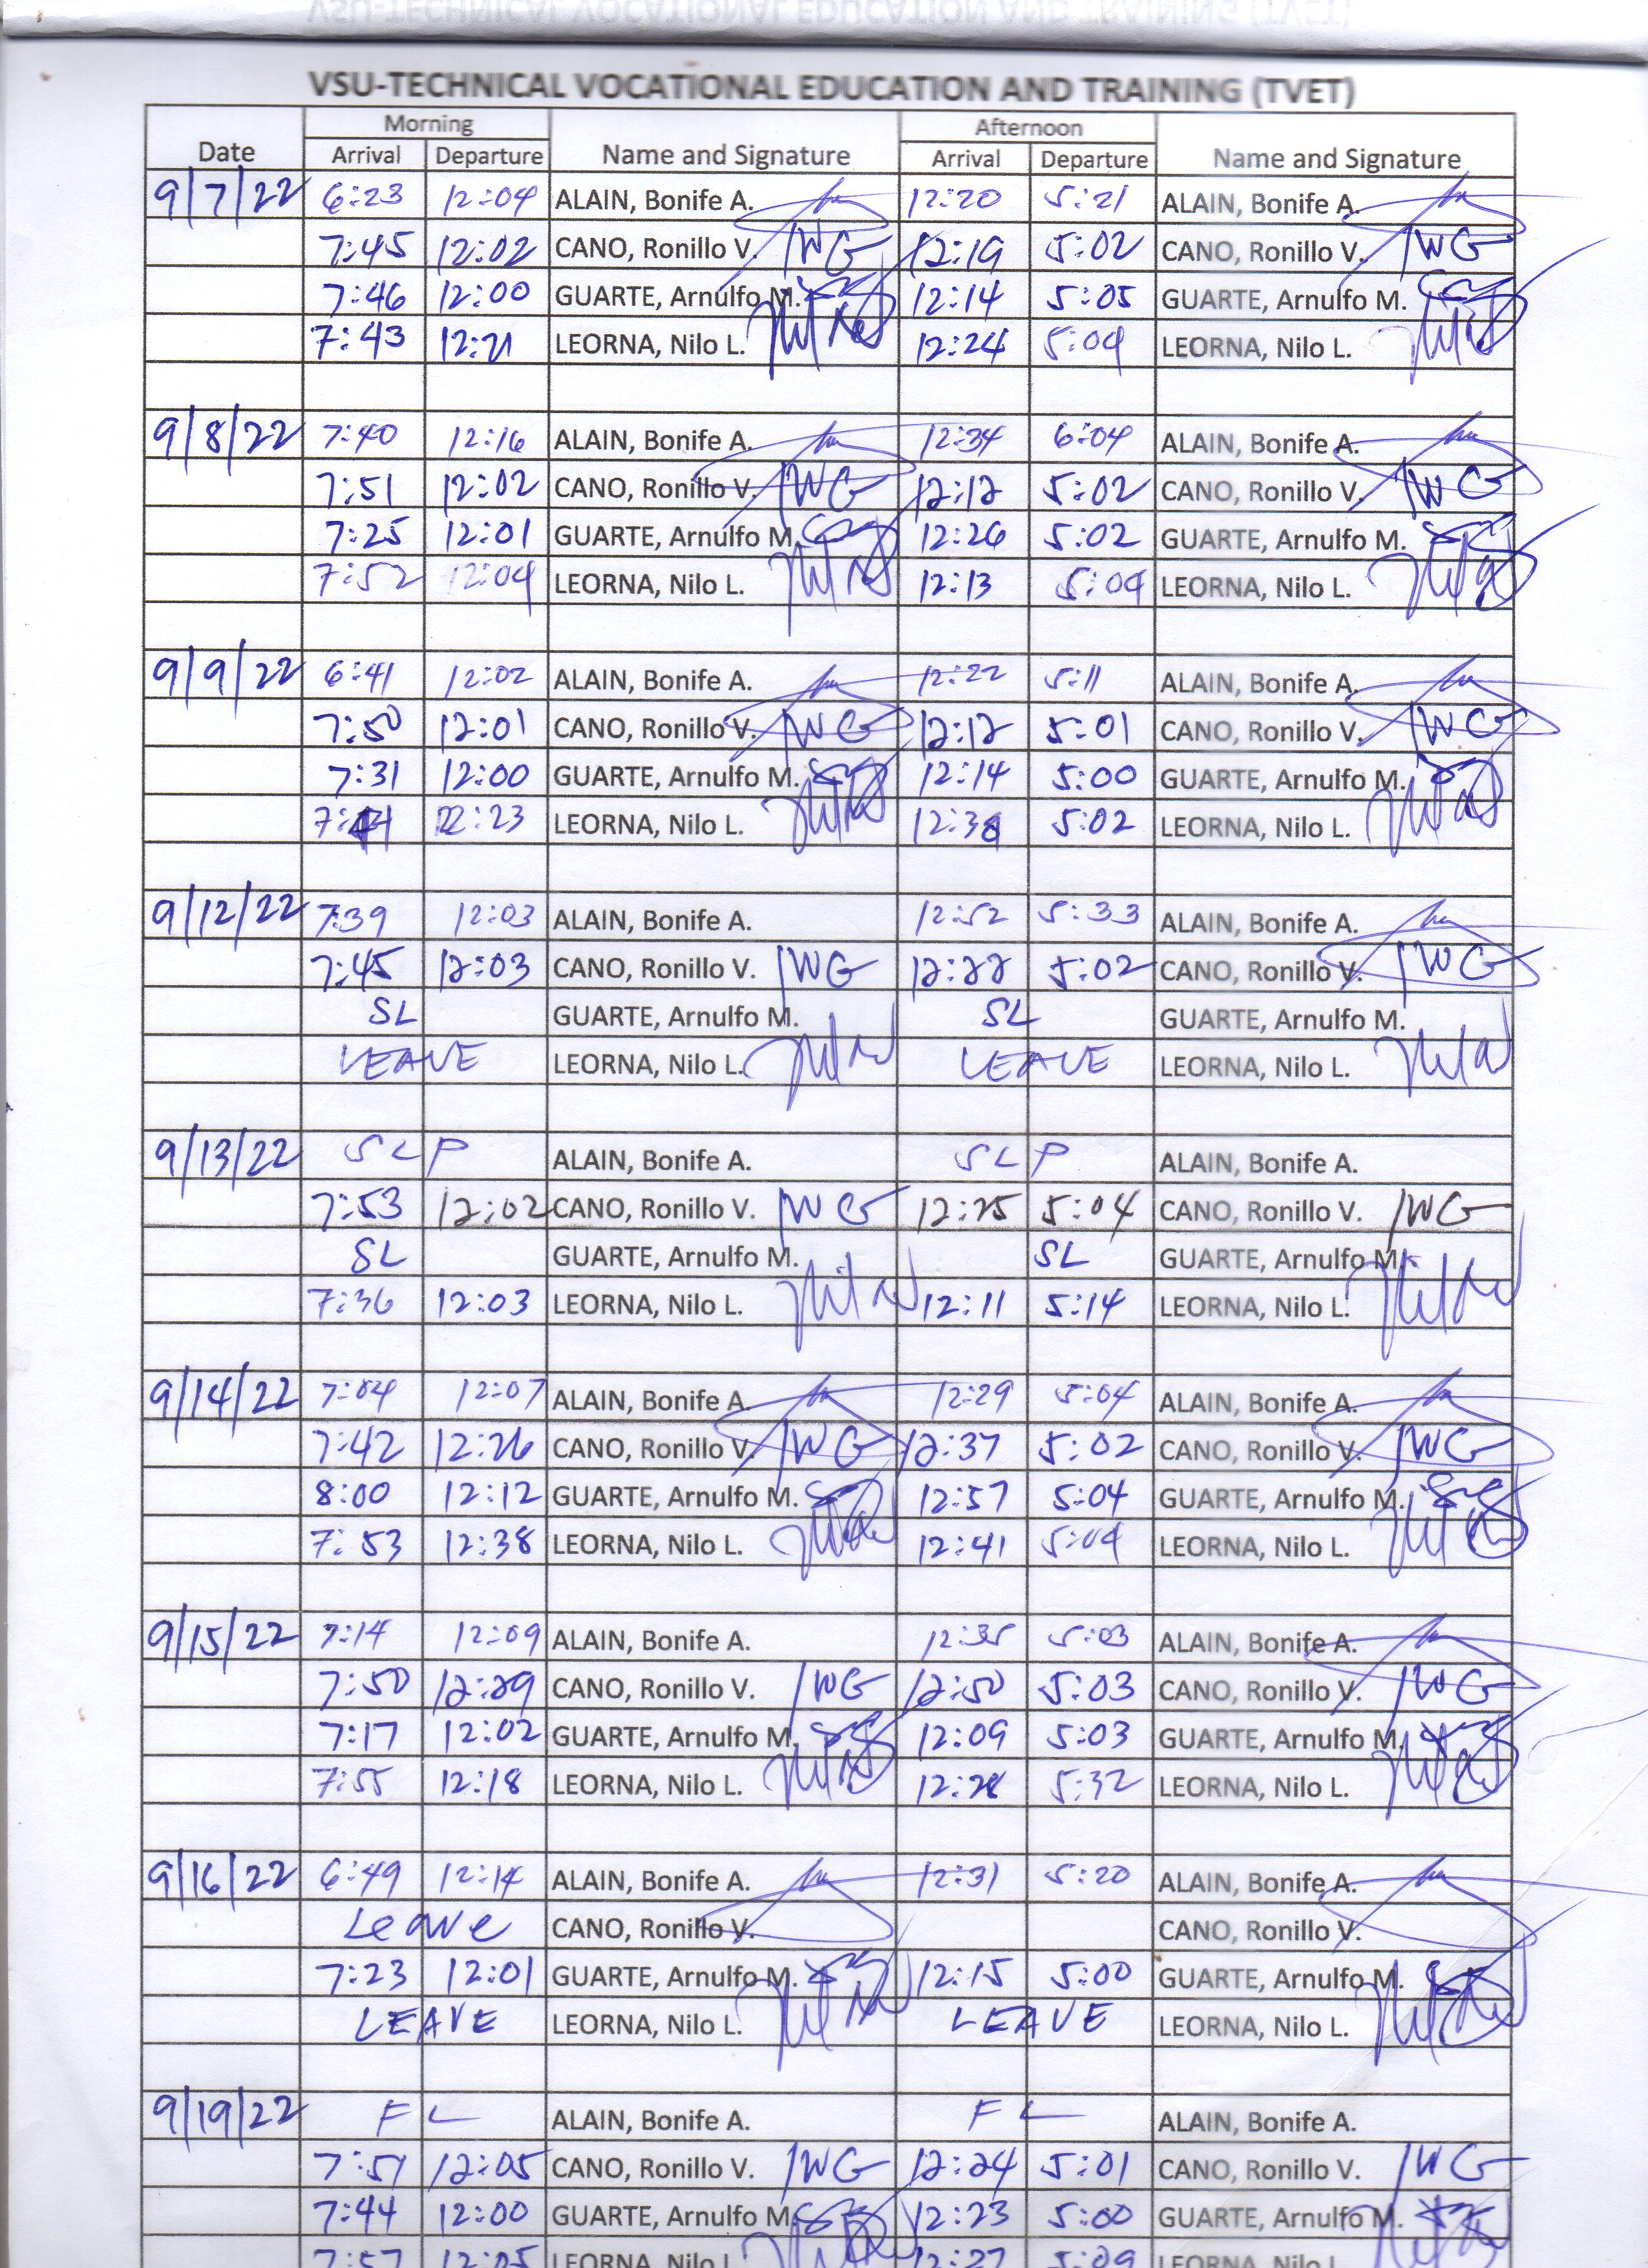 VSU-TECHNICAL VOCATIONAL EDUCATION AND TRAINING (TVET)
Morning Afternoon
Date Arrival Departure Name and Signature Arrival Departure Name and Signature
9/7/22 6:23 12:04 ALAIN, Bonife A. 12:20 5:21 ALAIN, Bonife A.
7:45 12:02 CANO, Ronillo V. 12:19 5:02 CANO, Ronillo V.
7:46 12:00 GUARTE, Arnulfo M. 12:14 5:05 GUARTE, Arnulfo M.
7:43 12:21 LEORNA, Nilo L. 12:24 5:04 LEORNA, Nilo L.
9/8/22 7:40 12:16 ALAIN, Bonife A. 12:34 6:04 ALAIN, Bonife A.
7:51 12:02 CANO, Ronillo V. 12:12 5:02 CANO, Ronillo V.
7:25 12:01 GUARTE, Arnulfo M. 12:26 5:02 GUARTE, Arnulfo M.
7:52 12:04 LEORNA, Nilo L. 12:13 5:04 LEORNA, Nilo L.
9/9/22 6:41 12:02 ALAIN, Bonife A. 12:22 5:11 ALAIN, Bonife A.
7:50 12:01 CANO, Ronillo V. 12:12 5:01 CANO, Ronillo V.
7:31 12:00 GUARTE, Arnulfo M. 12:14 5:00 GUARTE, Arnulfo M.
LEORNA, Nilo L. 5:02 LEORNA, Nilo L.
9/12/22 7:39 12:03 ALAIN, Bonife A. 12:52 5:33 ALAIN, Bonife A.
7:45 12:03 CANO, Ronillo V. 12:22 5:02 CANO, Ronillo V.
SL GUARTE, Arnulfo M. SL GUARTE, Arnulfo M.
LEAVE LEORNA, Nilo L. LEAVE LEORNA, Nilo L.
9/13/22 SLP ALAIN, Bonife A. SLP ALAIN, Bonife A.
7:53 12:02 CANO, Ronillo V. 12:25 5:04 CANO, Ronillo V.
SL GUARTE, Arnulfo M. SL GUARTE, Arnulfo M.
7:36 12:03 LEORNA, Nilo L. 12:11 5:14 LEORNA, Nilo L.
9/14/22 7:04 12:07 ALAIN, Bonife A. 12:29 5:04 ALAIN, Bonife A.
7:42 12:26 CANO, Ronillo V. 12:37 5:02 CANO, Ronillo V.
8:00 12:12 GUARTE, Arnulfo M. 12:57 5:04 GUARTE, Arnulfo M.
7:53 12:38 LEORNA, Nilo L. 12:41 5:04 LEORNA, Nilo L.
9/15/22 7:14 12:09 ALAIN, Bonife A. 12:35 5:03 ALAIN, Bonife A.
7:50 12:29 CANO, Ronillo V. 12:50 5:03 CANO, Ronillo V.
7:17 12:02 GUARTE, Arnulfo M. 12:09 5:03 GUARTE, Arnulfo M.
7:55 12:18 LEORNA, Nilo L. 12:28 5:32 LEORNA, Nilo L.
9/16/22 6:49 12:14 ALAIN, Bonife A. 12:31 5:20 ALAIN, Bonife A.
Leave CANO, Ronillo V. CANO, Ronillo V.
7:23 12:01 GUARTE, Arnulfo M. 12:15 5:00 GUARTE, Arnulfo M.
LEAVE LEORNA, Nilo L. LEAVE LEORNA, Nilo L.
9/19/22 FL ALAIN, Bonife A. FL ALAIN, Bonife A.
7:51 12:05 CANO, Ronillo V. 12:24 5:01 CANO, Ronillo V.
7:44 12:00 GUARTE, Arnulfo M. 12:23 5:00 GUARTE, Arnulfo M.
7:57 12:05 LEORNA, Nilo L. 12:27 5:09 LEORNA, Nilo L.